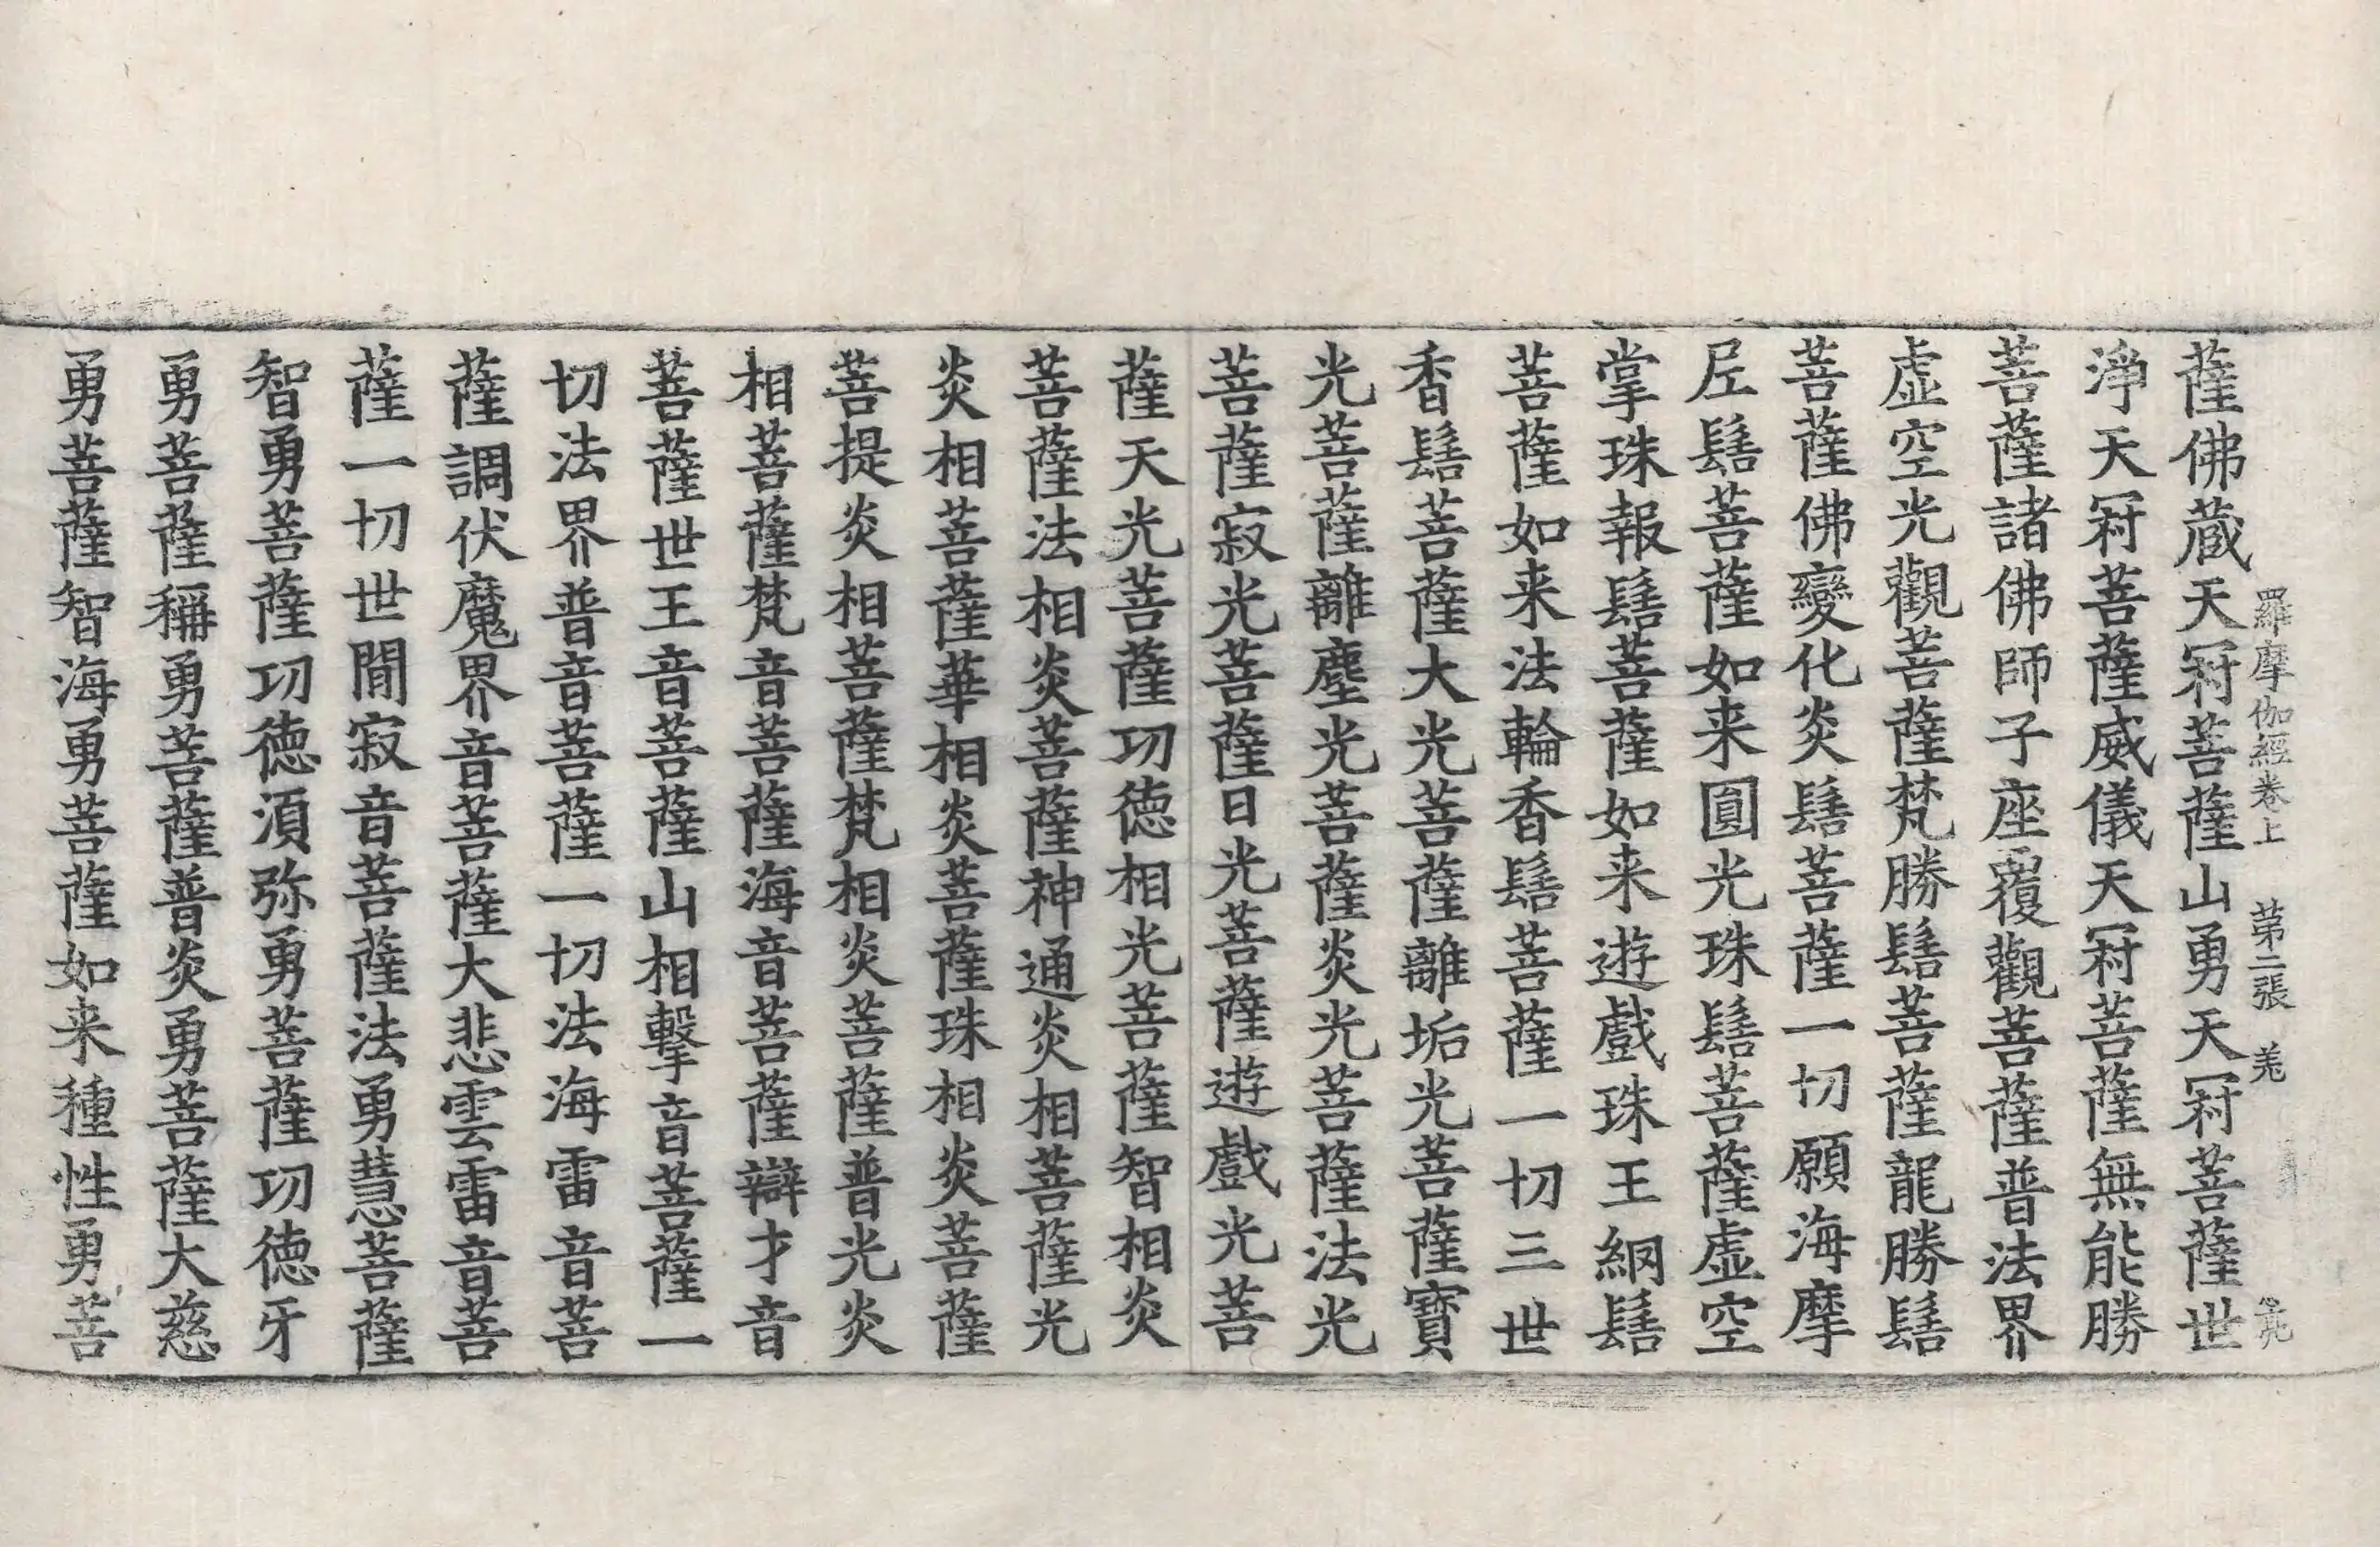 羅摩伽經卷上 第二張 羗
薩佛蔵天冠菩薩山勇天冠菩薩世
淨天冠菩薩威儀天冠菩薩無能勝
菩薩諸佛師子座覆觀菩薩普法界
虚空光觀菩薩梵勝髻菩薩龍勝髻
菩薩佛變化炎髻菩薩一切願海摩
𡰱髻菩薩如来圓光珠髻菩薩虚空
掌珠報髻菩薩如来遊戲珠王網髻
菩薩如来法輪香髻菩薩一切三世
香髻菩薩大光菩薩離垢光菩薩寶
光菩薩離塵光菩薩炎光菩薩法光
菩薩寂光菩薩日光菩薩遊戲光菩
薩天光菩薩功德相光菩薩智相炎
菩薩法相炎菩薩神通炎相菩薩光
炎相菩薩華相炎菩薩珠相炎菩薩
菩提炎相菩薩梵相炎菩薩普光炎
相菩薩梵音菩薩海音菩薩辯才音
菩薩世王音菩薩山相擊音菩薩一
切法界普音菩薩一切法海雷音菩
薩調伏魔界音菩薩大悲雲雷音菩
薩一切世間寂音菩薩法勇慧菩薩
智勇菩薩功德須弥勇菩薩功德牙
勇菩薩稱勇菩薩普炎勇菩薩大慈
勇菩薩智海勇菩薩如来種性勇菩